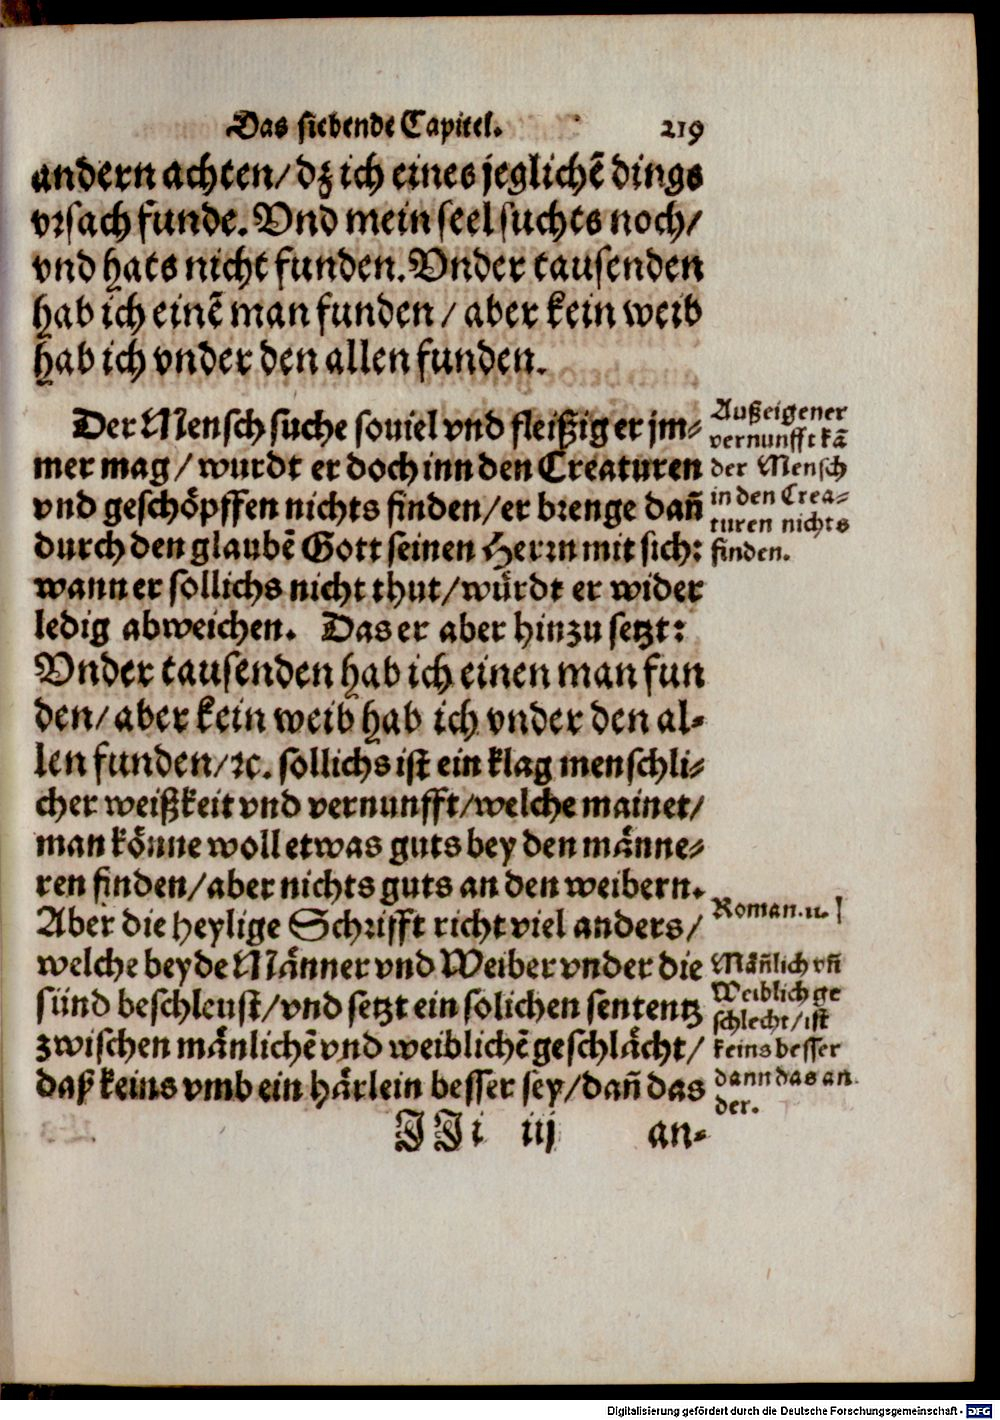 Das siebende Capitel. 219
andern achten/dz ich eines jeglichē dings
vrsach funde. Vnd mein seel suchts noch/
vnd hats nicht funden. Vnder tausenden
hab ich einē man funden/aber kein weib
hab ich vnder den allen funden.
Der Mensch suche souiel vnd fleißig er jm-
mer mag/wurdt er doch inn den Creaturen
vnd geschöpffen nichts finden/er brenge dañ
durch den glaubē Gott seinen Herrn mit sich:
wann er sollichs nicht thut/würdt er wider
ledig abweichen. Das er aber hinzu setzt:
Vnder tausenden hab ich einen man fun
den/aber kein weib hab ich vnder den al-
len funden/ꝛc. sollichs ist ein klag menschli-
cher weißkeit vnd vernunfft/welche mainet/
man könne woll etwas guts bey den männe-
ren finden/aber nichts guts an den weibern.
Aber die heylige Schrifft richt viel anders/
welche beyde Männer vnd Weiber vnder die
sünd beschleust/vnd setzt ein solichen sententz
zwischen mänlichē vnd weiblichē geschlächt/
daß keins vmb ein härlein besser sey/dañ das
JJi iij an-
Auß eigener
vernunfft kā
der Mensch
in den Crea-
turen nichts
finden.
Roman. 11.
Mäñlich vñ
Weiblich ge
schlecht/ist
keins besser
dann das an
der.
Digitalisierung gefördert durch die Deutsche Forschungsgemeinschaft - DFG